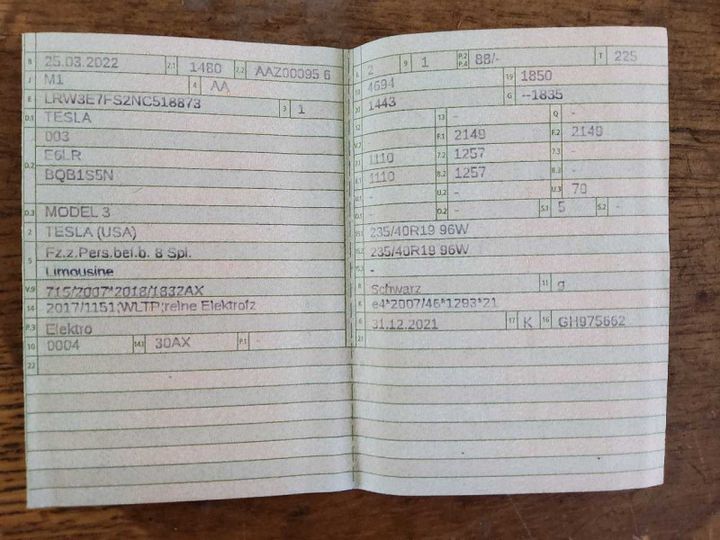 B 25.03.2022 2.1 1480 2.2 AAZ00095 6
J M1 4 AA
E LRW3E7FS2NC518873 3 1
D.1 TESLA
003
D.2 E6LR
BQB1S5N
D.3 MODEL 3
2 TESLA (USA)
5 Fz.z.Pers.bef.b. 8 Spl.
Limousine
V.9 715/2007*2018/1832AX
14 2017/1151;WLTP;reine Elektrofz
P.3 Elektro
10 0004 14.1 30AX P.1 -
22
L 2 9 1 P.2 P.4 88/- T 225
18 4694 19 1850
20 1443 G --1835
12 - 13 - Q -
V.7 - F.1 2149 F.2 2149
7.1 1110 7.2 1257 7.3 -
8.1 1110 8.2 1257 8.3 -
U.1 - U.2 - U.3 70
O.1 - O.2 - S.1 5 S.2 -
15.1 235/40R19 96W
15.2 235/40R19 96W
15.3 -
R Schwarz 11 g
K e4*2007/46*1293*21
6 31.12.2021 17 K 16 GH975662
21